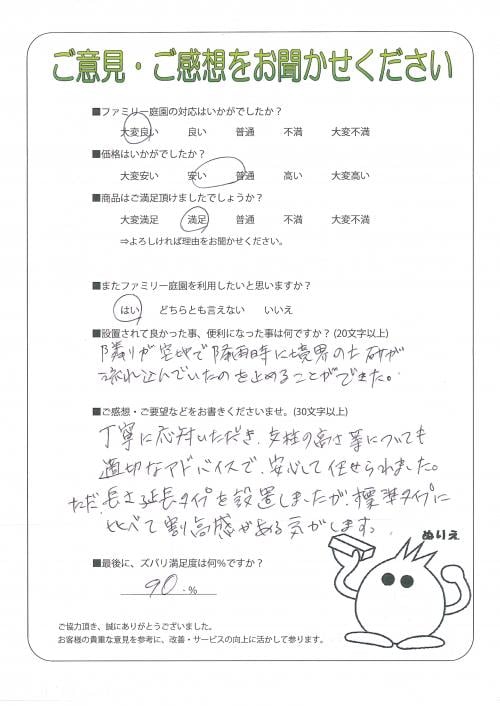 ご意見・ご感想をお聞かせください
■ファミリー庭園の対応はいかがでしたか？
大変良い 良い 普通 不満 大変不満
■価格はいかがでしたか？
大変安い 安い 普通 高い 大変高い
■商品はご満足頂けましたでしょうか？
大変満足 満足 普通 不満 大変不満
⇒よろしければ理由をお聞かせください。
■またファミリー庭園を利用したいと思いますか？
はい どちらとも言えない いいえ
■設置されて良かった事、便利になった事は何ですか？(20文字以上)
隣りが空地で降雨時に境界の土砂が
流れ込んでいたのを止めることができた。
■ご感想・ご要望などをお書きくださいませ。(30文字以上)
丁寧に応対いただき、支柱の高さ等についても
適切なアドバイスで、安心して任せられました。
ただ、長さ延長タイプを設置しましたが、標準タイプに
比べて割高感がある気がします。
ぬりえ
■最後に、ズバリ満足度は何%ですか？
90.%
ご協力頂き、誠にありがとうございました。
お客様の貴重な意見を参考に、改善・サービスの向上に活かして参ります。